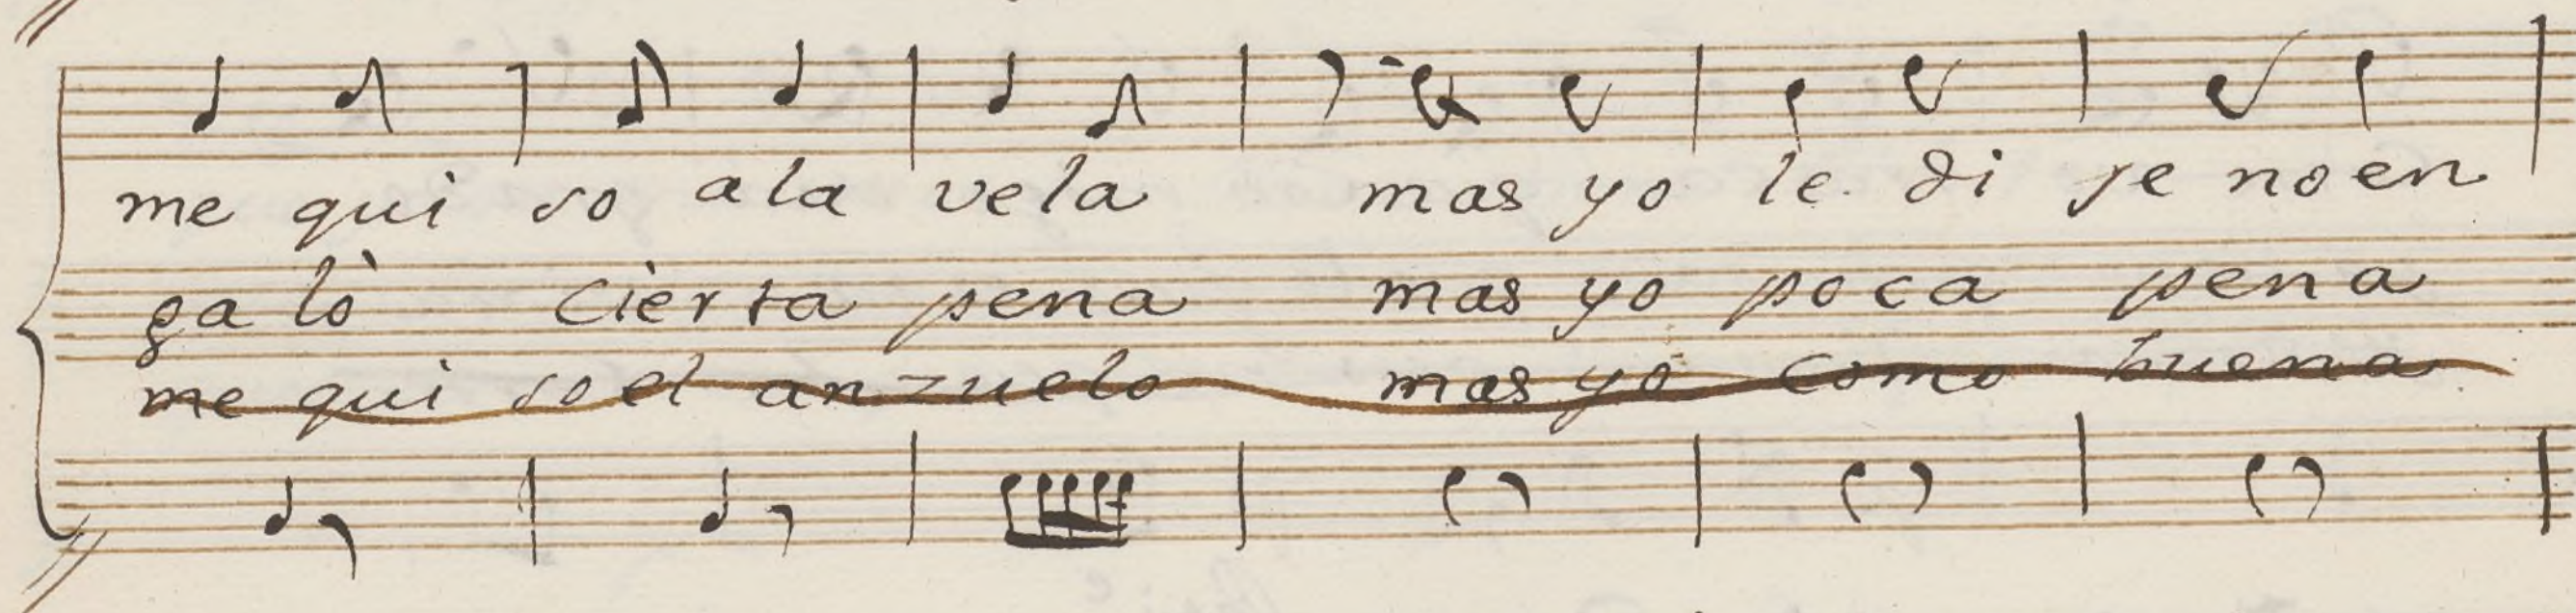 me qui so a la vela mas yo le di je no en
ga lò cièr ta pena mas yo poca pena
me qui so el anzuelo mas yo como buena